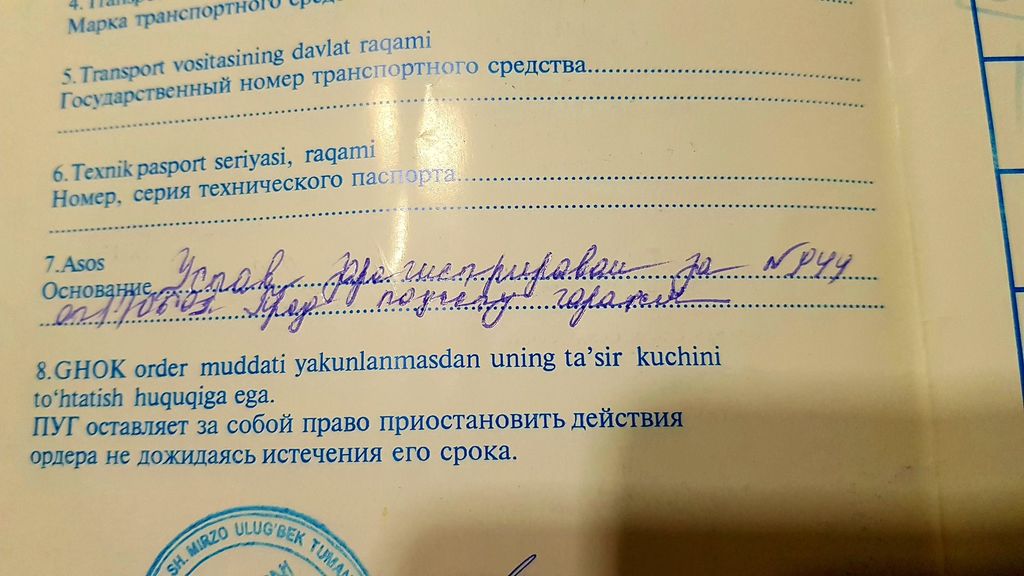 4. Transport
Марка транспортного
5. Transport vositasining davlat raqami
Государственный номер транспортного средства
6. Texnik pasport seriyasi, raqami
Номер, серия технического паспорта
7. Asos
Основание Устав зарегистрирован за №
8. GHOK order muddati yakunlanmasdan uning ta'sir kuchini
to'htatish huquqiga ega.
ПУГ оставляет за собой право приостановить действия
ордера не дожидаясь истечения его срока.
SH. MIRZO ULUG'BEK TUMANI